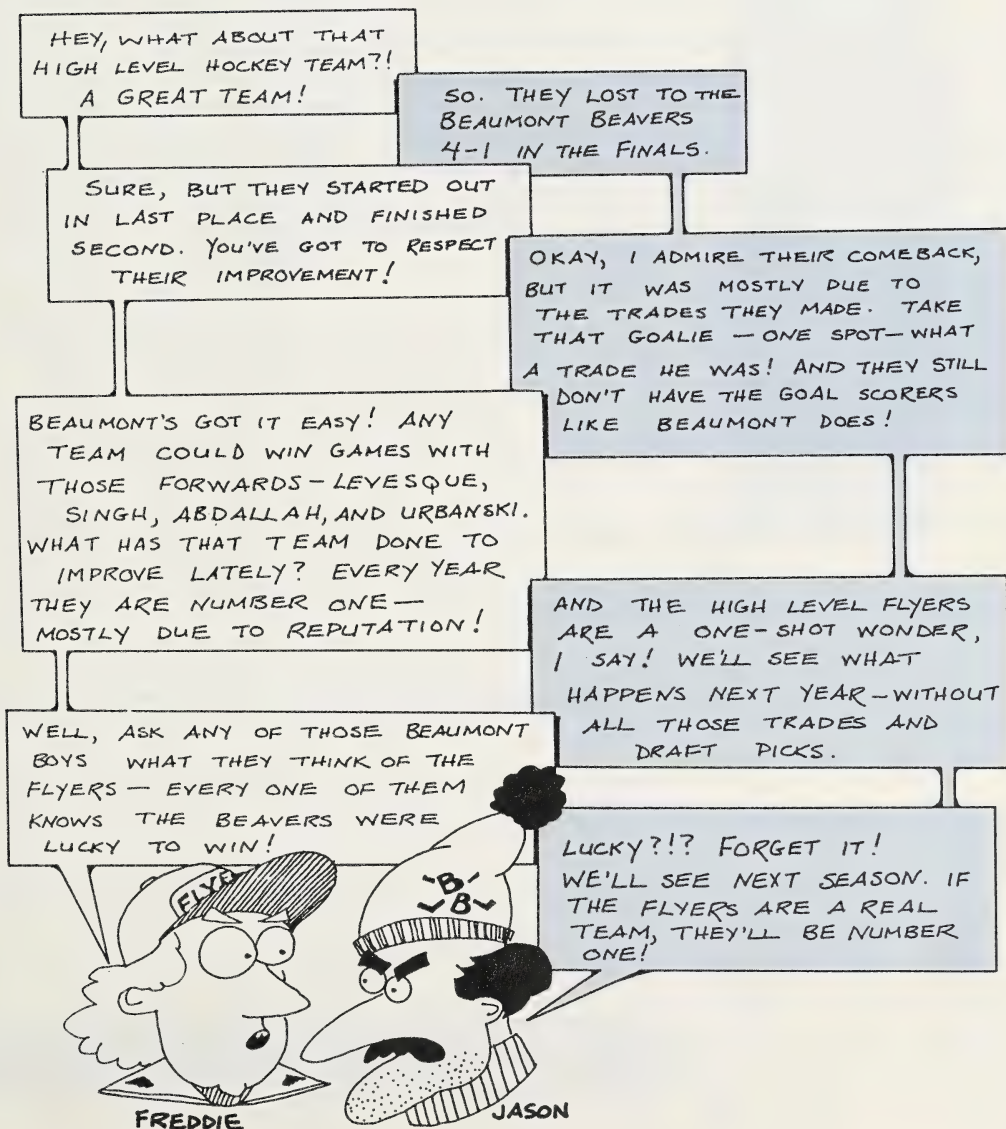 HEY, WHAT ABOUT THAT
HIGH LEVEL HOCKEY TEAM?!
A GREAT TEAM!
SO. THEY LOST TO THE
BEAUMONT BEAVERS
4-1 IN THE FINALS.
SURE, BUT THEY STARTED OUT
IN LAST PLACE AND FINISHED
SECOND. YOU'VE GOT TO RESPECT
THEIR IMPROVEMENT!
OKAY, I ADMIRE THEIR COMEBACK,
BUT IT WAS MOSTLY DUE TO
THE TRADES THEY MADE. TAKE
THAT GOALIE — ONE SPOT — WHAT
A TRADE HE WAS! AND THEY STILL
DON'T HAVE THE GOAL SCORERS
LIKE BEAUMONT DOES!
BEAUMONT'S GOT IT EASY! ANY
TEAM COULD WIN GAMES WITH
THOSE FORWARDS – LEVESQUE,
SINGH, ABDALLAH, AND URBANSKI.
WHAT HAS THAT TEAM DONE TO
IMPROVE LATELY? EVERY YEAR
THEY ARE NUMBER ONE —
MOSTLY DUE TO REPUTATION!
AND THE HIGH LEVEL FLYERS
ARE A ONE-SHOT WONDER,
I SAY! WE'LL SEE WHAT
HAPPENS NEXT YEAR – WITHOUT
ALL THOSE TRADES AND
DRAFT PICKS.
WELL, ASK ANY OF THOSE BEAUMONT
BOYS WHAT THEY THINK OF THE
FLYERS — EVERY ONE OF THEM
KNOWS THE BEAVERS WERE
LUCKY TO WIN!
LUCKY?!? FORGET IT!
WE'LL SEE NEXT SEASON. IF
THE FLYERS ARE A REAL
TEAM, THEY'LL BE NUMBER
ONE!
FLYE
B
B
FREDDIE
JASON